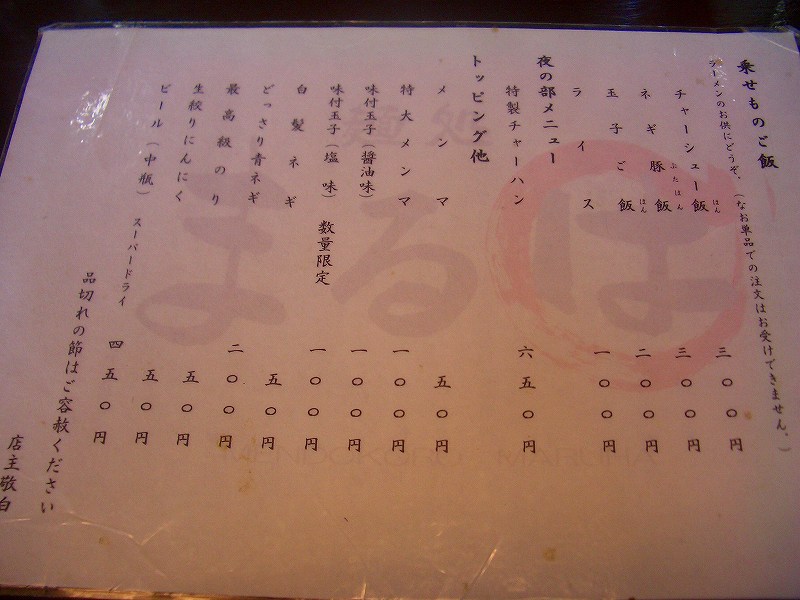 乗せものご飯
ラーメンのお供にどうぞ。（なお単品での注文はお受けできません。）
チャーシュー飯（はん） 三〇〇円
ネギ豚飯（ぶたはん） 三〇〇円
玉子ご飯（はん） 二〇〇円
ライス 一〇〇円
夜の部メニュー
特製チャーハン 六五〇円
トッピング他
メンマ 五〇円
特大メンマ 一〇〇円
味付玉子（醤油味） 一〇〇円
味付玉子（塩味） 数量限定 一〇〇円
白髪ネギ 五〇円
どっさり青ネギ 二〇〇円
最高級のり 五〇円
生絞りにんにく 五〇円
ビール（中瓶） スーパードライ 四五〇円
品切れの節はご容赦ください
店主敬白
麺処
まるは